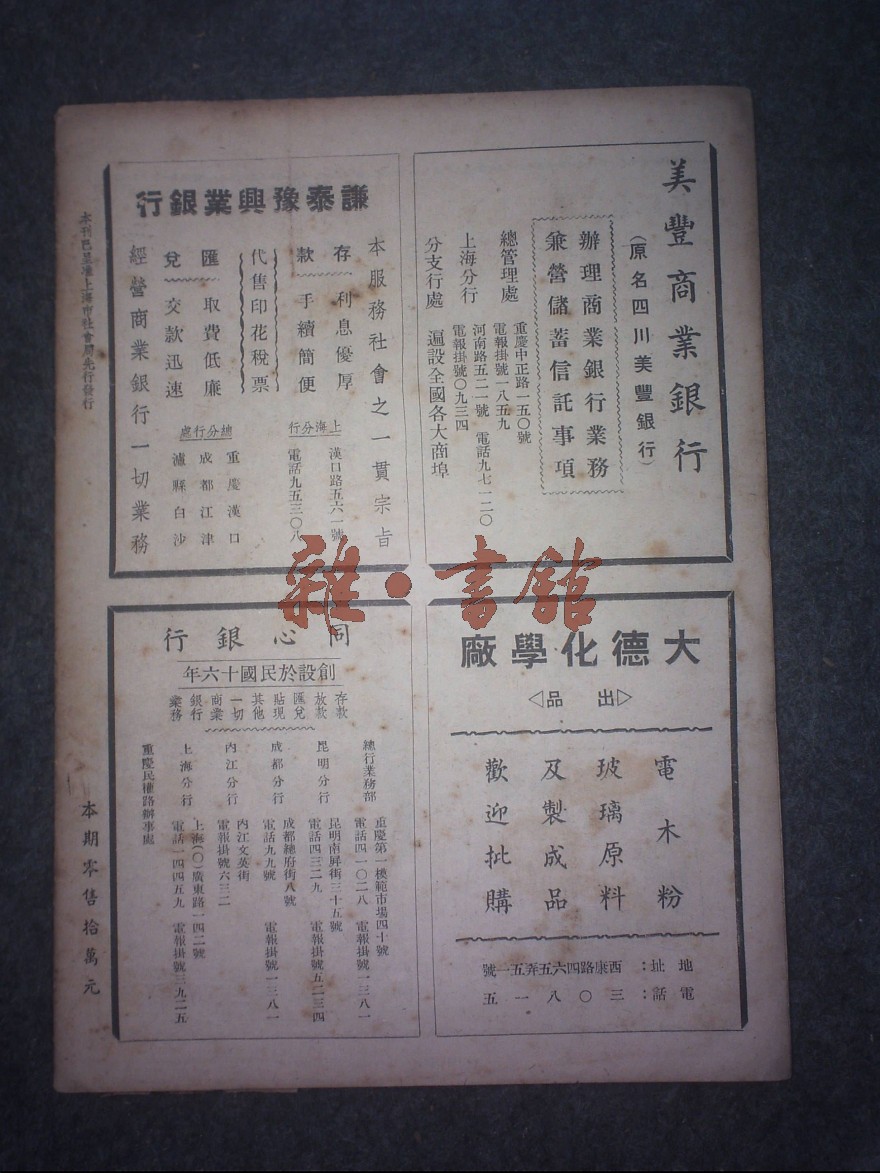 美豐商業銀行
（原名四川美豐銀行）
辦理商業銀行業務
兼營儲蓄信託事項
總管理處
重慶中正路一五〇號
電報掛號一八五九
上海分行
河南路五二一號 電話九七一二〇
電報掛號〇九三四
分支行處 遍設全國各大商埠
謙泰豫興業銀行
本服務社會之一貫宗旨
存款
利息優厚
手續簡便
代售印花稅票
匯兌
取費低廉
交款迅速
上海分行
漢口路五六一號
電話九五三〇八
總分行處
重慶漢口
成都江津
瀘縣白沙
經營商業銀行一切業務
大德化學廠
▷出品◁
電木粉
玻璃原料
及製成品
歡迎批購
地址：西康路四六五弄五一號
電話：三〇八一五
同心銀行
創設於民國十六年
存款
放款
匯兌
貼現
其他
一切
商業
銀行
業務
總行業務部
重慶第一模範市場四十號
電話四一〇二八 電報掛號一三八一
昆明分行
昆明南屏街三十五號
電話四三二九 電報掛號五二三四
成都分行
成都總府街八號
電話九九號 電報掛號一三八一
內江分行
內江文英街
電報掛號六三二
上海分行
上海(〇)廣東路一四二號
電話一四四五九 電報掛號三九二五
重慶民權路辦事處
本刊已呈准上海市社會局先行發行
本期零售拾萬元
雜·書館